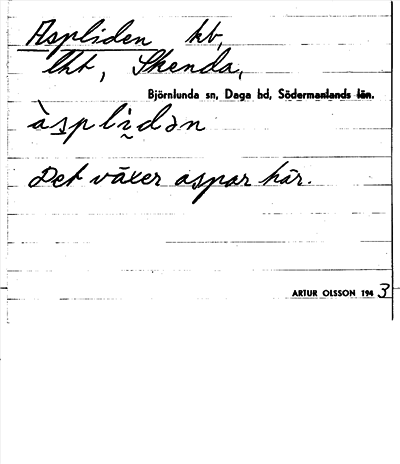 Aspliden hb,
lht, Skenda,
Björnlunda sn, Daga hd, Södermanlands län.
àsplidən
Det växer aspar här.
ARTUR OLSSON 1943